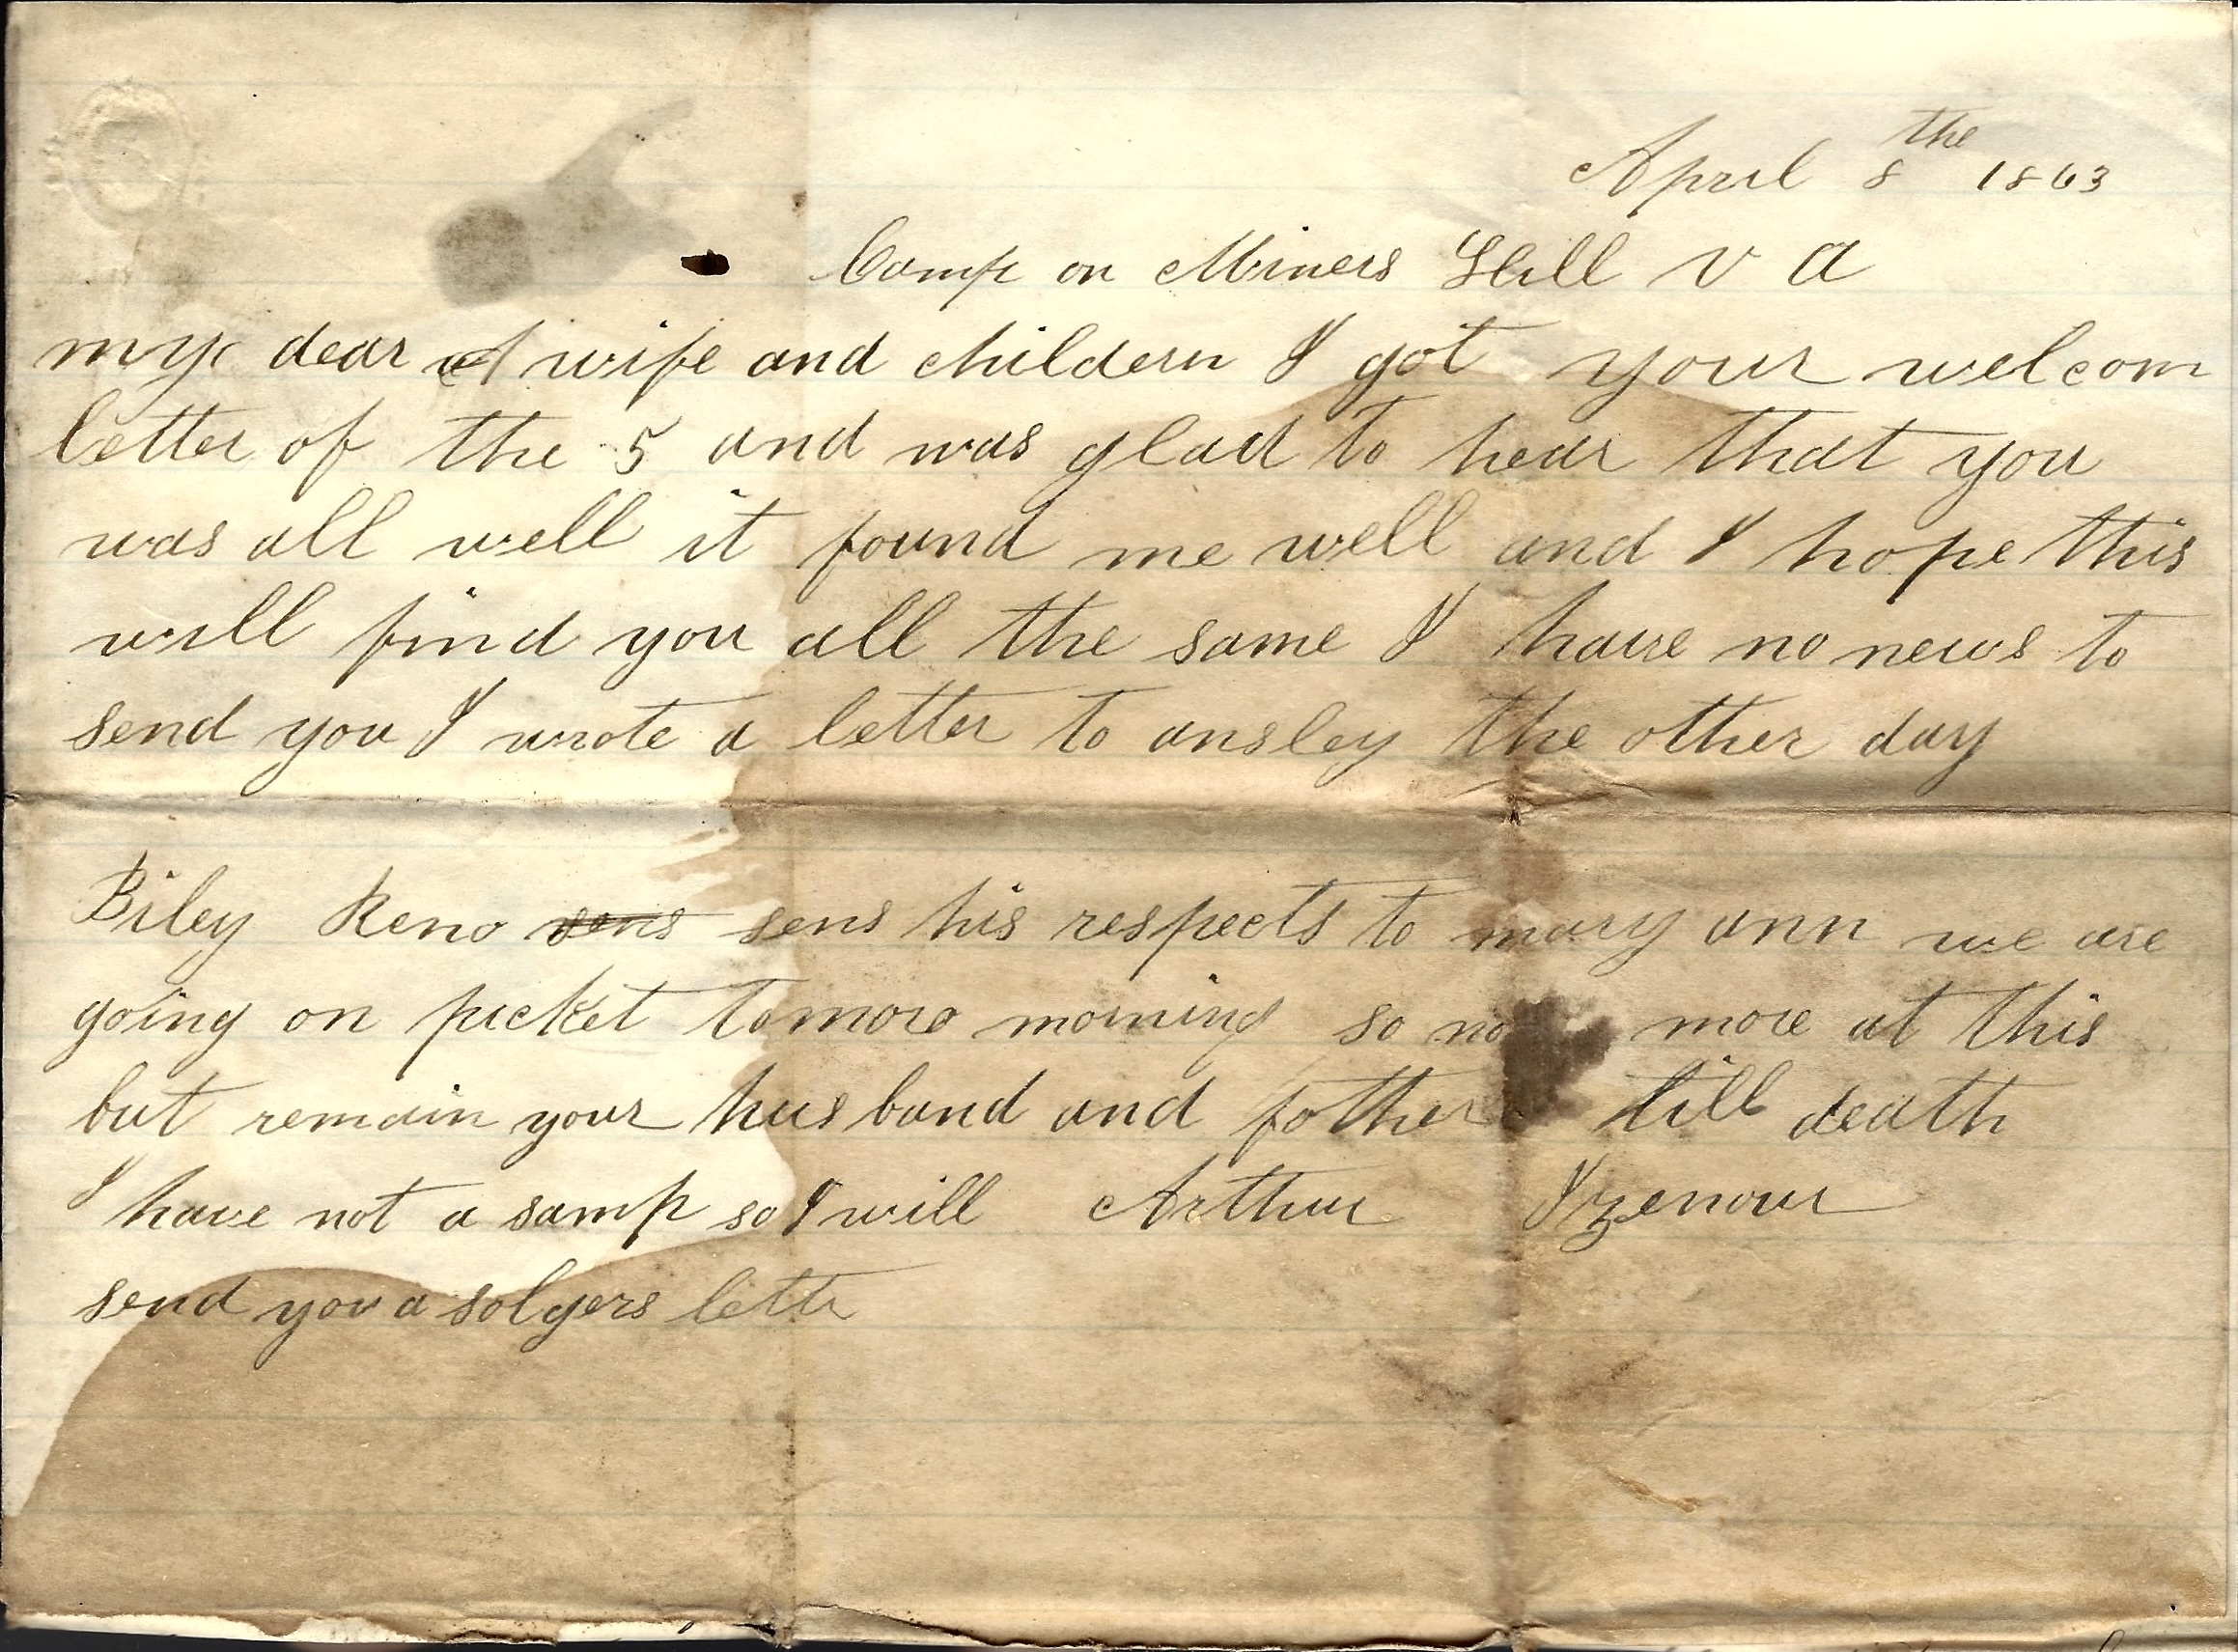 April 8 the 1863
Camp on Miners Hill v a
my dear wife and childern I got your welcom
letter of the 5 and was glad to hear that you
was all well it found me well and I hope this
will find you all the same I have no news to
send you I wrote a letter to ansley the other day
Biley Reno sens sens his respects to mary ann we are
going on picket tomoro morning so no more at this
but remain your husband and fother till death
I have not a samp so I will Arthur Izenour
send you a solgers lettr